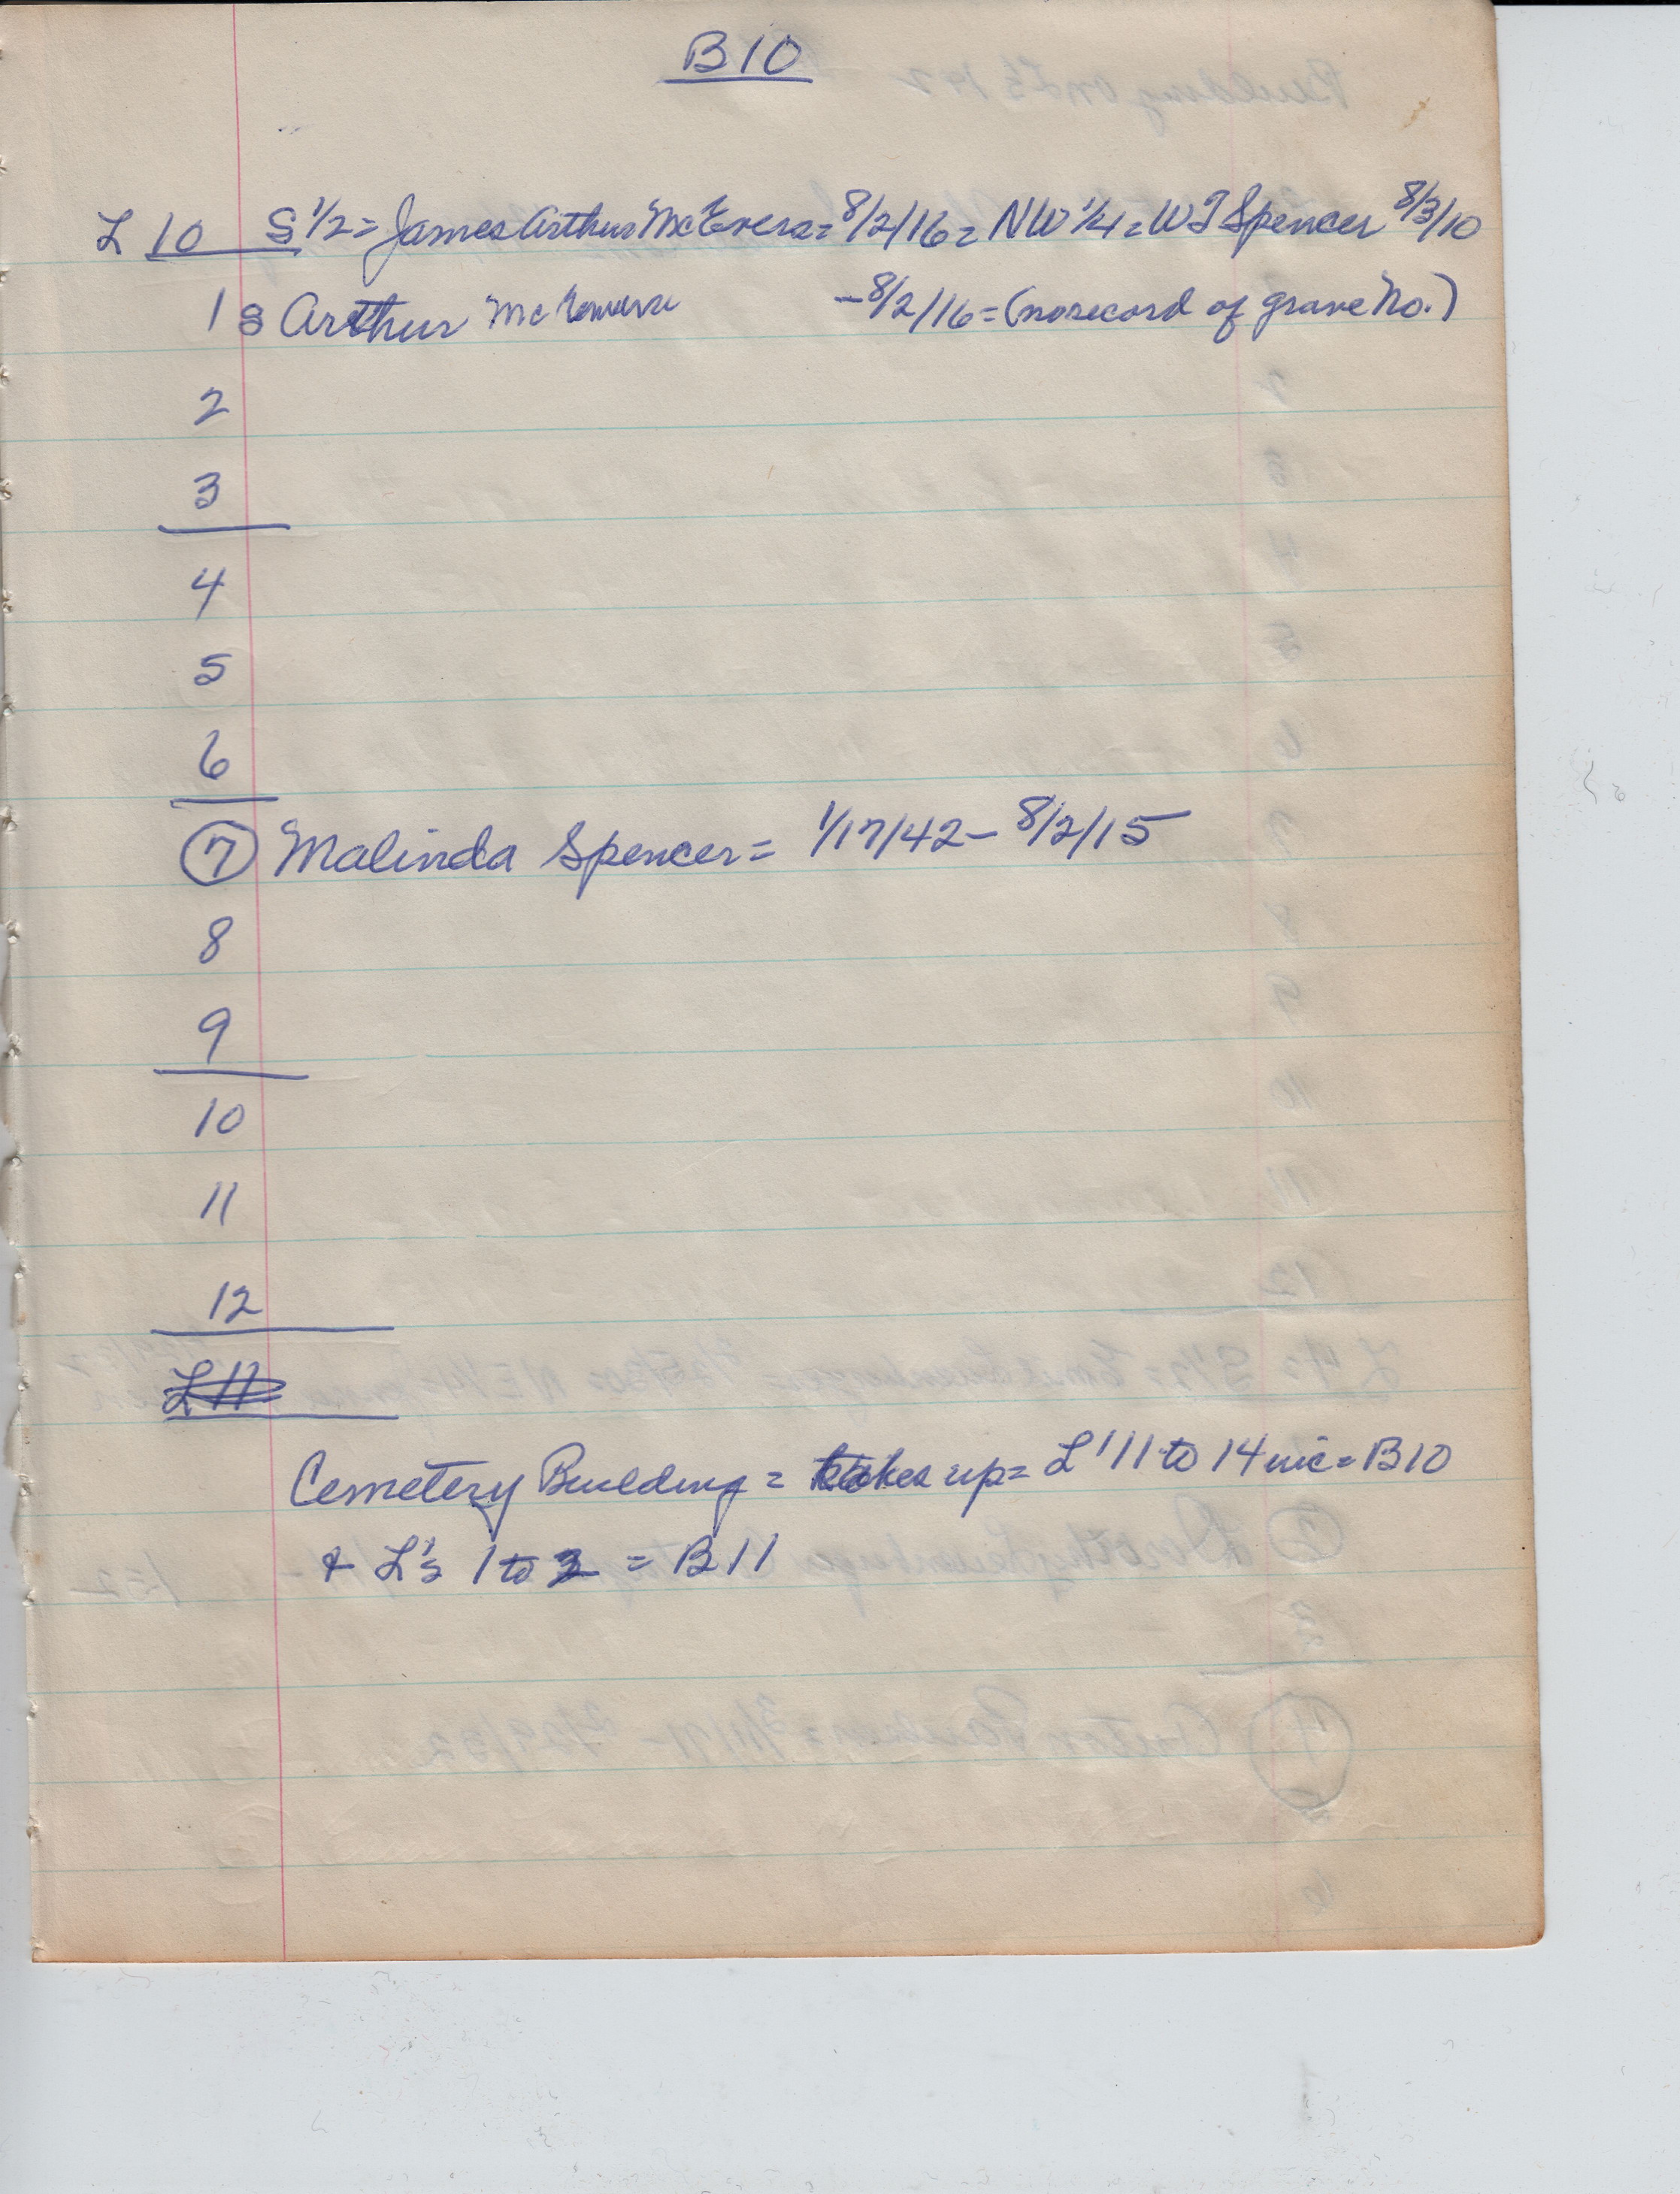 B10
L 10 S 1/2 = James Arthur McEvers = 8/2/16 = NW 1/4 = WT Spencer 8/3/10
1 S Arthur Mc -8/2/16 = (no record of grave No.)
2
3
4
5
6
7 Malinda Spencer = 1/17/42 - 8/2/15
8
9
10
11
12
L 11
Cemetery Building = takes up = L' 11 to 14 inc = B10
& L's 1 to = B11